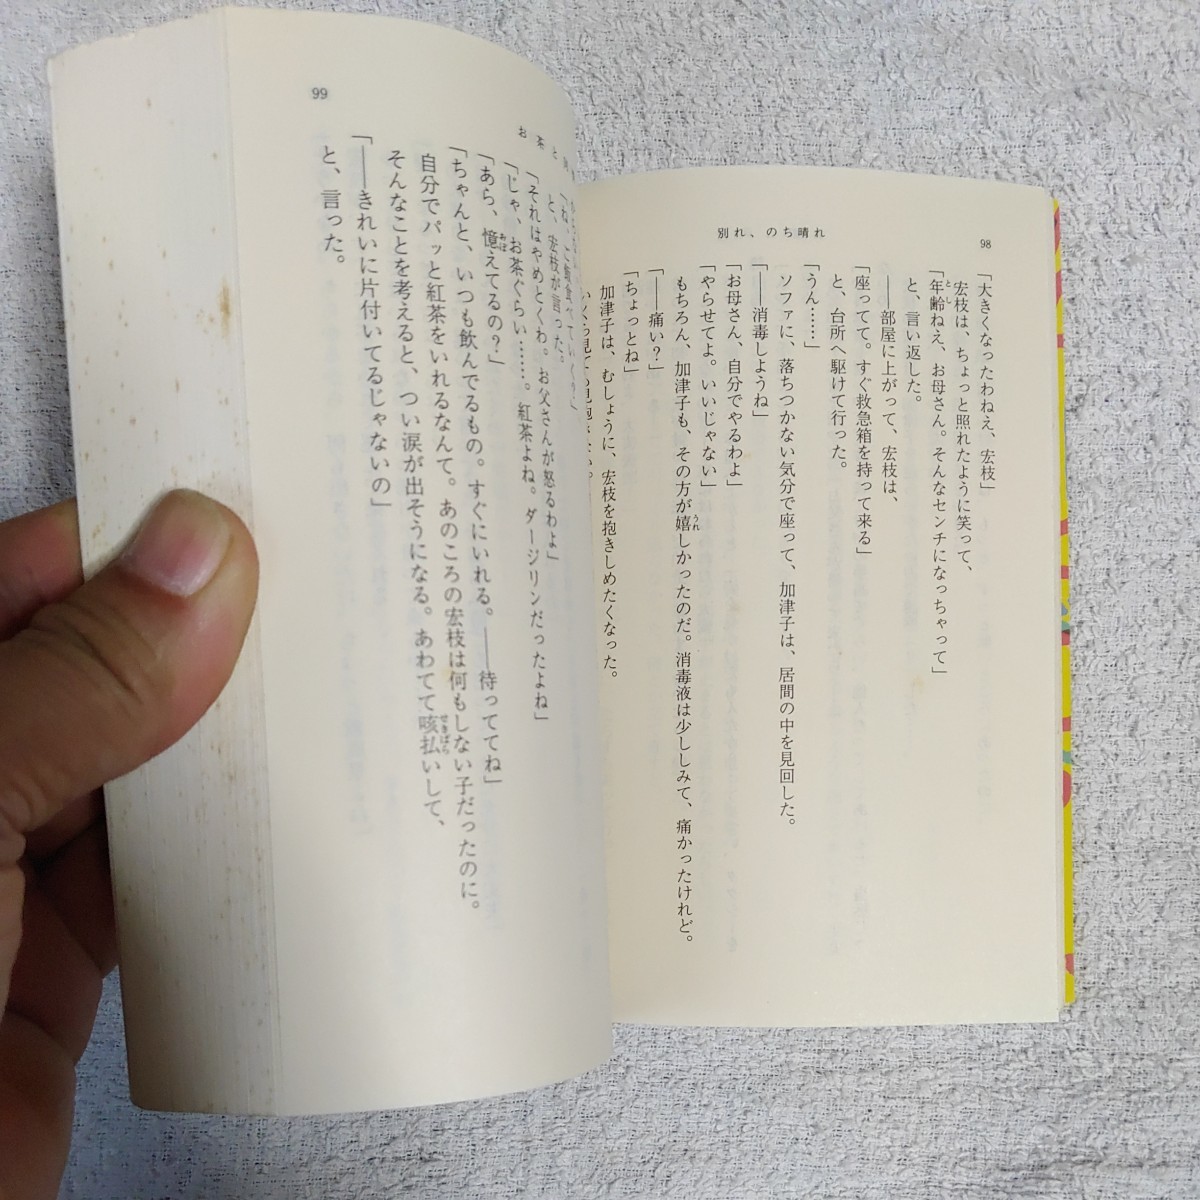 98
別れ、のち晴れ
「大きくなったわねえ、宏枝」
宏枝は、ちょっと照れたように笑って、
「年齢ねえ、お母さん。そんなセンチになっちゃって」
と、言い返した。
――部屋に上がって、宏枝は、
「座ってて。すぐ救急箱を持って来る」
と、台所へ駆けて行った。
「うん……」
ソファに、落ちつかない気分で座って、加津子は、居間の中を見回した。
「――消毒しようね」
「お母さん、自分でやるわよ」
「やらせてよ。いいじゃない」
もちろん、加津子も、その方が嬉しかったのだ。消毒液は少ししみて、痛かったけれど。
「――痛い？」
「ちょっとね」
加津子は、むしょうに、宏枝を抱きしめたくなった。
99
お茶と
と、宏枝が言った。
「それはやめとくわ。お父さんが怒るわよ」
「じゃ、お茶ぐらい……。紅茶よね。ダージリンだったよね」
「あら、憶えてるの？」
「ちゃんと、いつも飲んでるもの。すぐにいれる。――待っててね」
自分でパッと紅茶をいれるなんて。あのころの宏枝は何もしない子だったのに。
そんなことを考えると、つい涙が出そうになる。あわてて咳払いして、
「――きれいに片付いてるじゃないの」
と、言った。